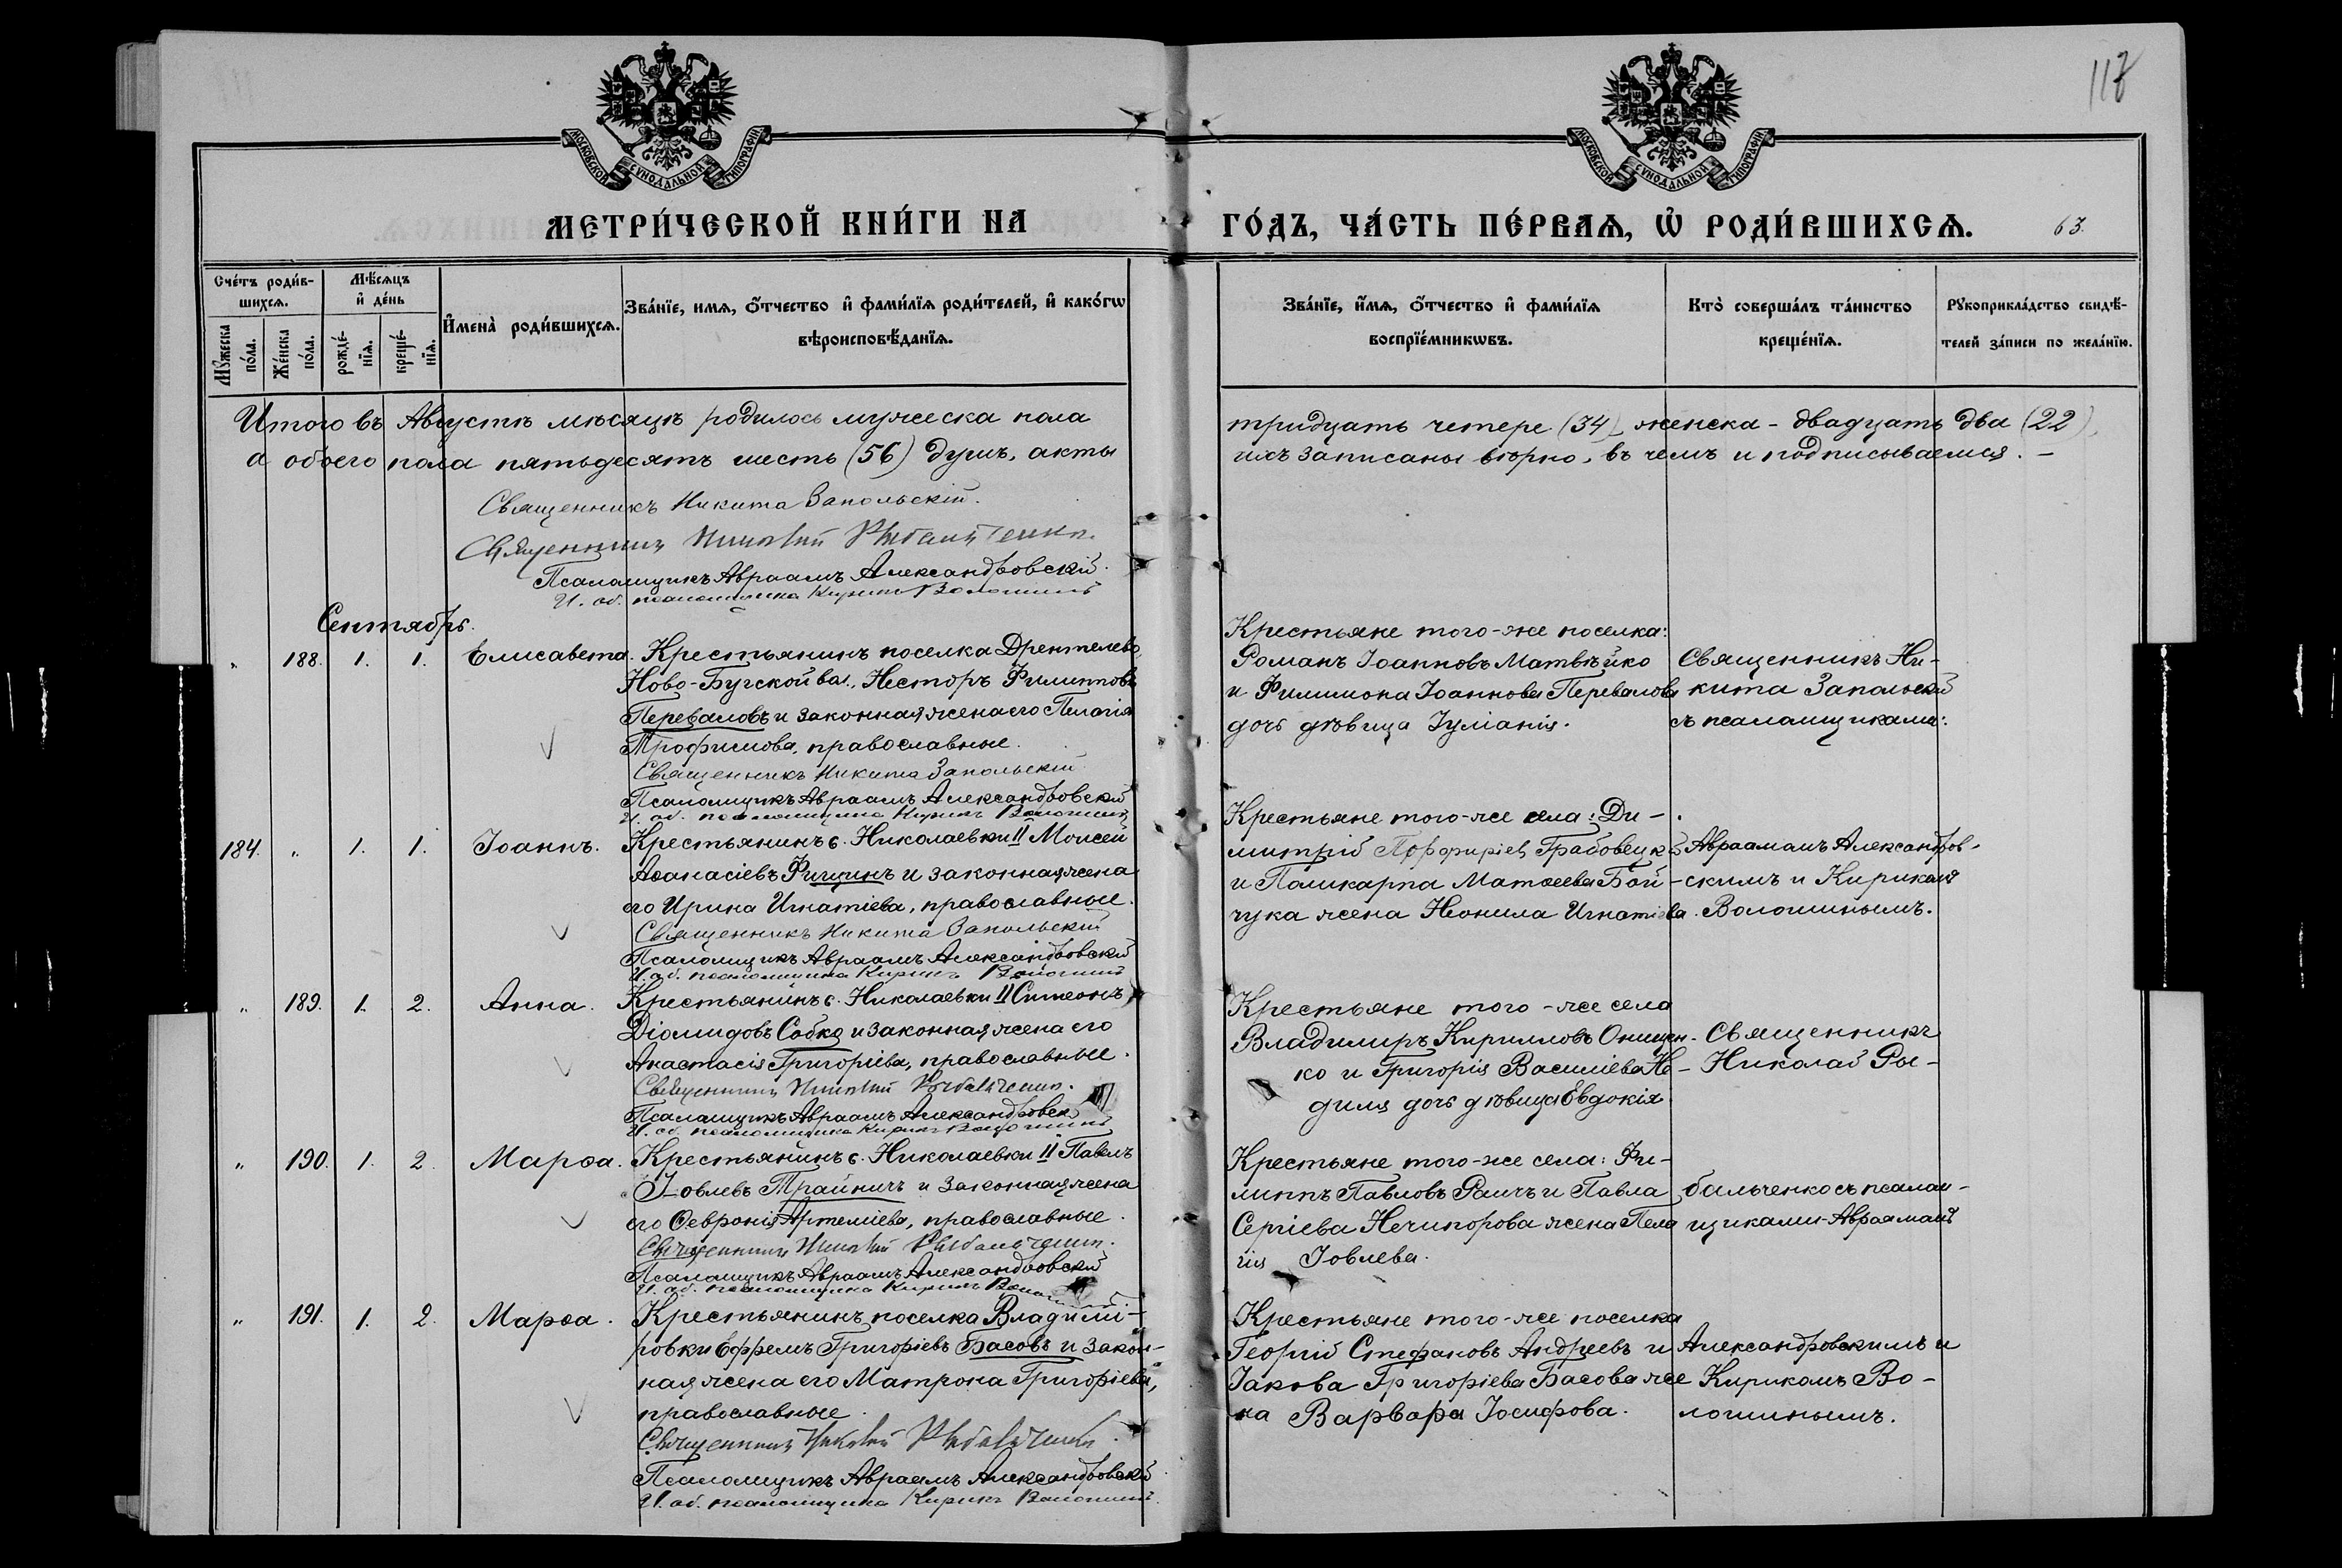 117
МОСКОВСКОЙ СУНОДАЛЬНОЙ ТИПОГРАФІИ
МОСКОВСКОЙ СУНОДАЛЬНОЙ ТИПОГРАФІИ
МЕТРИ́ЧЕСКОЙ КНИ́ГИ НА ГО́ДЪ, ЧА́СТЬ ПЕ́РВАѦ, Ѡ҆ РОДИ́ВШИХСѦ. 63.
Сче́тъ роди́в-
шихсѧ.
Му́жеска по́ла.
Же́нска по́ла.
Мѣ́сѧцъ
и҆ де́нь
рожде́-
нїѧ.
креще́-
нїѧ.
И҆мена̀ роди́вшихсѧ.
Зва́нїе, имѧ, ѻ҆́тчество и҆ фами́лїѧ роди́телей, и҆ како́гѡ
вѣроисповѣ́данїѧ.
Зва́нїе, и҆́мѧ, ѻ҆́тчество и҆ фами́лїѧ
воспрїе́мникѡвъ.
Кто̀ соверша́лъ та́инство
креще́нїѧ.
Рꙋкоприкла́дство свидѣ́-
телей за́писи по жела́нїю.
Итого въ Августѣ мѣсяцѣ родилось мужеска пола тридцать четере (34), женска - двадцать два (22),
а обоего пола пятьдесятъ шесть (56) душъ, акты ихъ записаны вѣрно, въ чемъ и подписываемся. -
Священникъ Никита Запольскій.
Священникъ Николай Рыбальченко.
Псаломщикъ Авраамъ Александровскій.
И. об. псаломщика Кирикъ Волошинъ
Сентябрь.
" 188. 1. 1. Елисавета.
Крестьянинъ поселка Дрентелево,
Ново-Бугской вол., Несторъ Филипповъ
Переваловъ и законная жена его Пелагія
Трофимова, православные.
Священникъ Никита Запольскій
Псаломщикъ Авраамъ Александровскій
И. об. псаломщика Кирикъ Волошинъ
Крестьяне того-же поселка:
Романъ Іоанновъ Матвѣйко
и Филимона Іоаннова Перевалова
дочь дѣвица Іуліанія.
Священникъ Ни-
кита Запольскій
съ псаломщиками:
184. " 1. 1. Іоаннъ.
Крестьянинъ с. Николаевки II Моисей
Аѳанасіевъ Фищинъ и законная жена
его Ирина Игнатіева, православные.
Священникъ Никита Запольскій
Псаломщикъ Авраамъ Александровскій
И. об. псаломщика Кирикъ Волошинъ
Крестьяне того-же села: Ди-
митрій Порфиріевъ Грабовецкій
и Поликарпа Матѳеева Бой-
чука жена Неонила Игнатіева.
Авраамомъ Александров-
скимъ и Кирикомъ
Волошинымъ.
" 189. 1. 2. Анна.
Крестьянинъ с. Николаевки II Симеонъ
Діомидовъ Собко и законная жена его
Анастасія Григоріева, православные.
Священникъ Николай Рыбальченко.
Псаломщикъ Авраамъ Александровскій
И. об. псаломщика Кирикъ Волошинъ
Крестьяне того-же села
Владимиръ Кирилловъ Онищен-
ко и Григорія Василіева Но-
диля дочь дѣвица Евдокія.
Священникъ
Николай Ры-
" 190. 1. 2. Марѳа.
Крестьянинъ с. Николаевки II Павелъ
Іовлевъ Трайничъ и законная жена
его Ѳевронія Артеміева, православные.
Священникъ Николай Рыбальченко.
Псаломщикъ Авраамъ Александровскій
И. об. псаломщика Кирикъ Волошинъ
Крестьяне того-же села: Фи-
липпъ Павловъ Раичъ и Павла
Сергіева Нечипорова жена Пела
гія Іовлева.
бальченко съ псалом-
щиками Авраамомъ
" 191. 1. 2. Марѳа.
Крестьянинъ поселка Владими-
ровки Ефремъ Григоріевъ Басовъ и закон-
ная жена его Матрона Григоріева,
православные.
Священникъ Николай Рыбальченко.
Псаломщикъ Авраамъ Александровскій
И. об. псаломщика Кирикъ Волошинъ.
Крестьяне того-же поселка
Георгій Стефановъ Андреевъ и
Іакова Григоріева Басова же
на Варвара Іосифова.
Александровскимъ и
Кирикомъ Во-
лошинымъ.